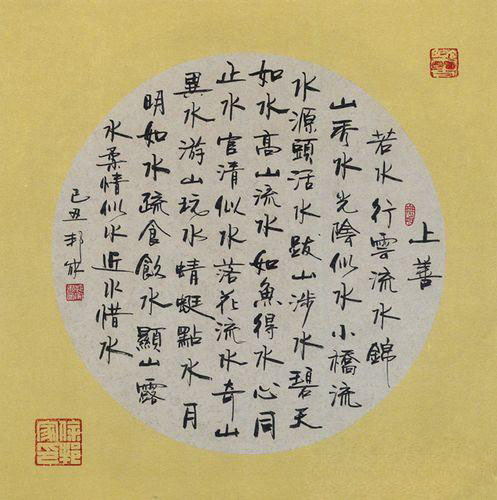 上善
若水行雲流水錦
山秀水光陰似水小橋流
水源頭活水跋山涉水碧天
如水高山流水如魚得水心同
止水官清似水落花流水奇山
異水游山玩水蜻蜓點水月
明如水疏食飲水顯山露
水柔情似水近水惜水
己丑邦